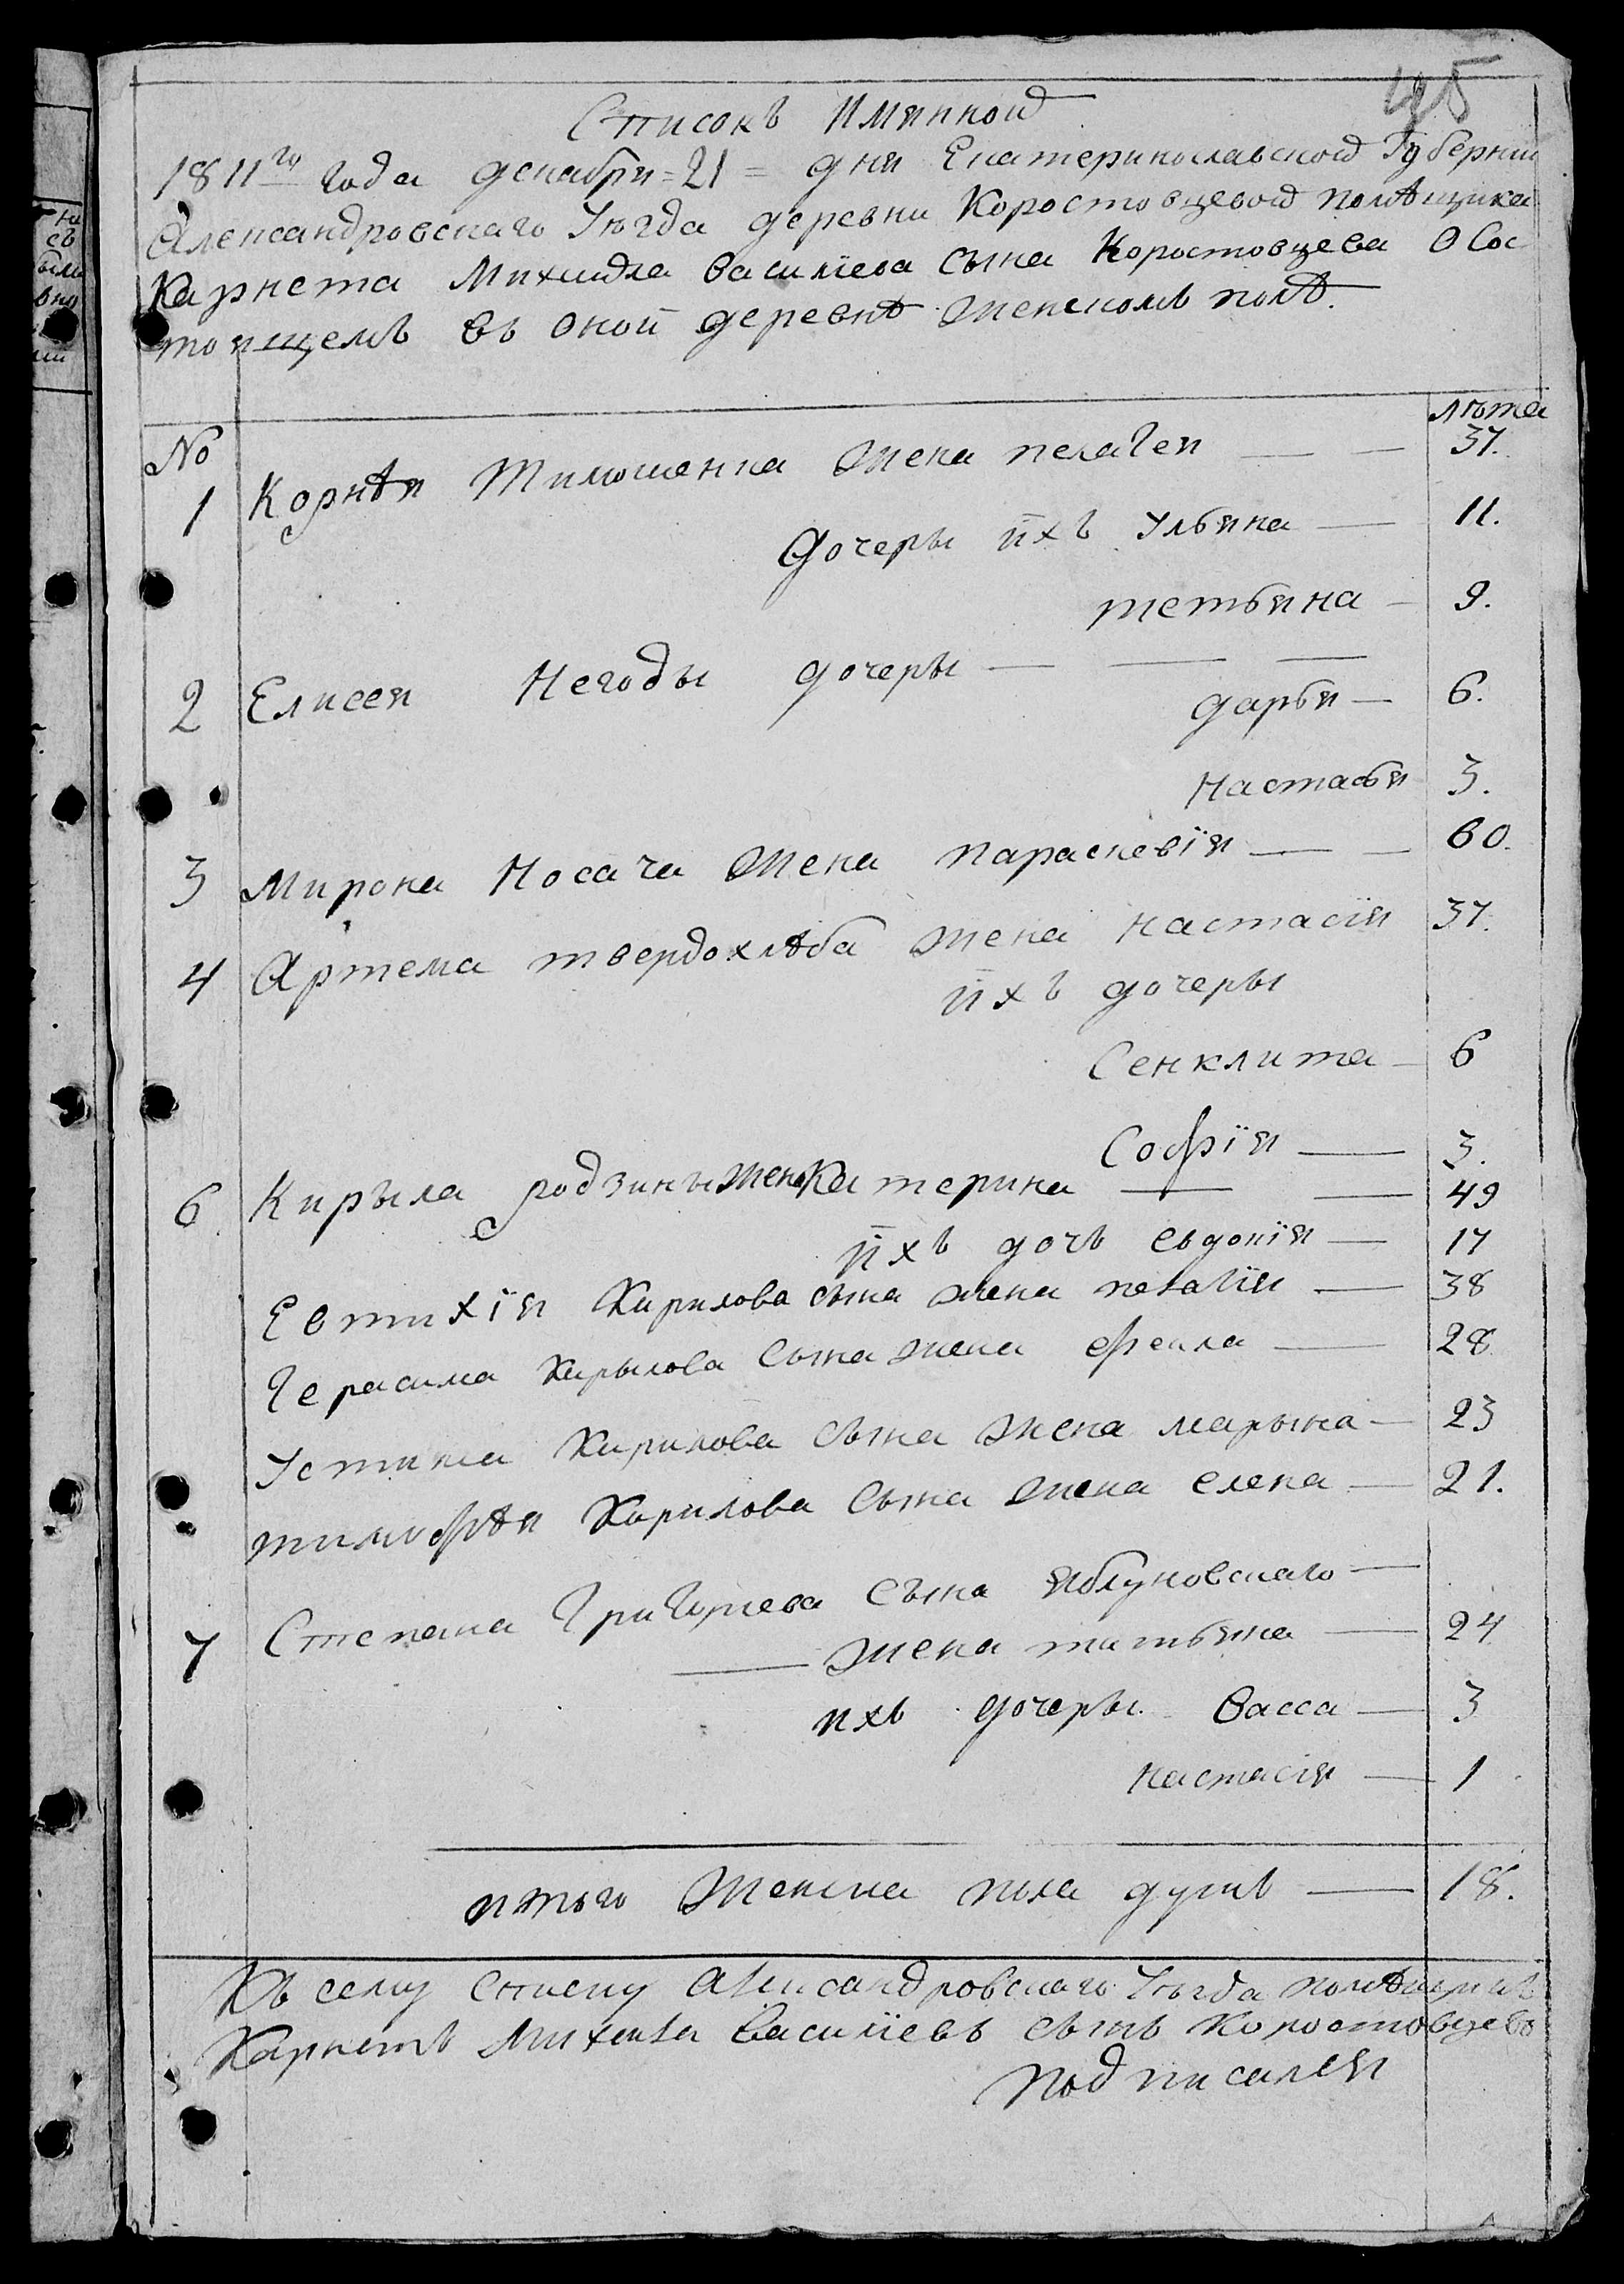 45
Списокъ Имянной
1811го года декабря = 21 = дня Екатеринославской Губернии
Александровскаго Уѣзда деревни Коростовцевой помѣщика
Карнета Михайла Василїева сына Коростовцева О Сос
тоящемъ въ оной деревнѣ женскомъ полѣ.
№ лѣта
1 Корнѣя Тимошенка жена пелагея — — 37.
дочеры ихъ Ульяна — 11.
тетьяна — 9.
2 Елисея Негоды дочеры — — —
дарья — 6.
Настасья 3.
3 Мирона Носача жена параскевїя — — 60.
4 Артема твердохлѣба жена настасїя 37.
ихъ дочеры
Сенклита — 6
Софїя — 3.
6 Кирыла родзины жена Катерина — — 49
ихъ дочь евдокїя — 17
Евтихїя Кирилова сына жена пелагїя — 38
Герасима Кирылова сына жена фекла — 28
Устина Кирилова сына жена марына — 23
тимофѣя Кирилова сына жена елена — 21.
7 Степана Григорьева сына яблуновскаго —
— жена татьяна — 24
ихъ дочеры Васса — 3
настасїя — 1
итого женска пола душъ — 18.
Къ сему списку александровскаго уѣзда помѣщикъ
Карнетъ Михайла Василїевъ сынъ Коростовцевъ
подписался